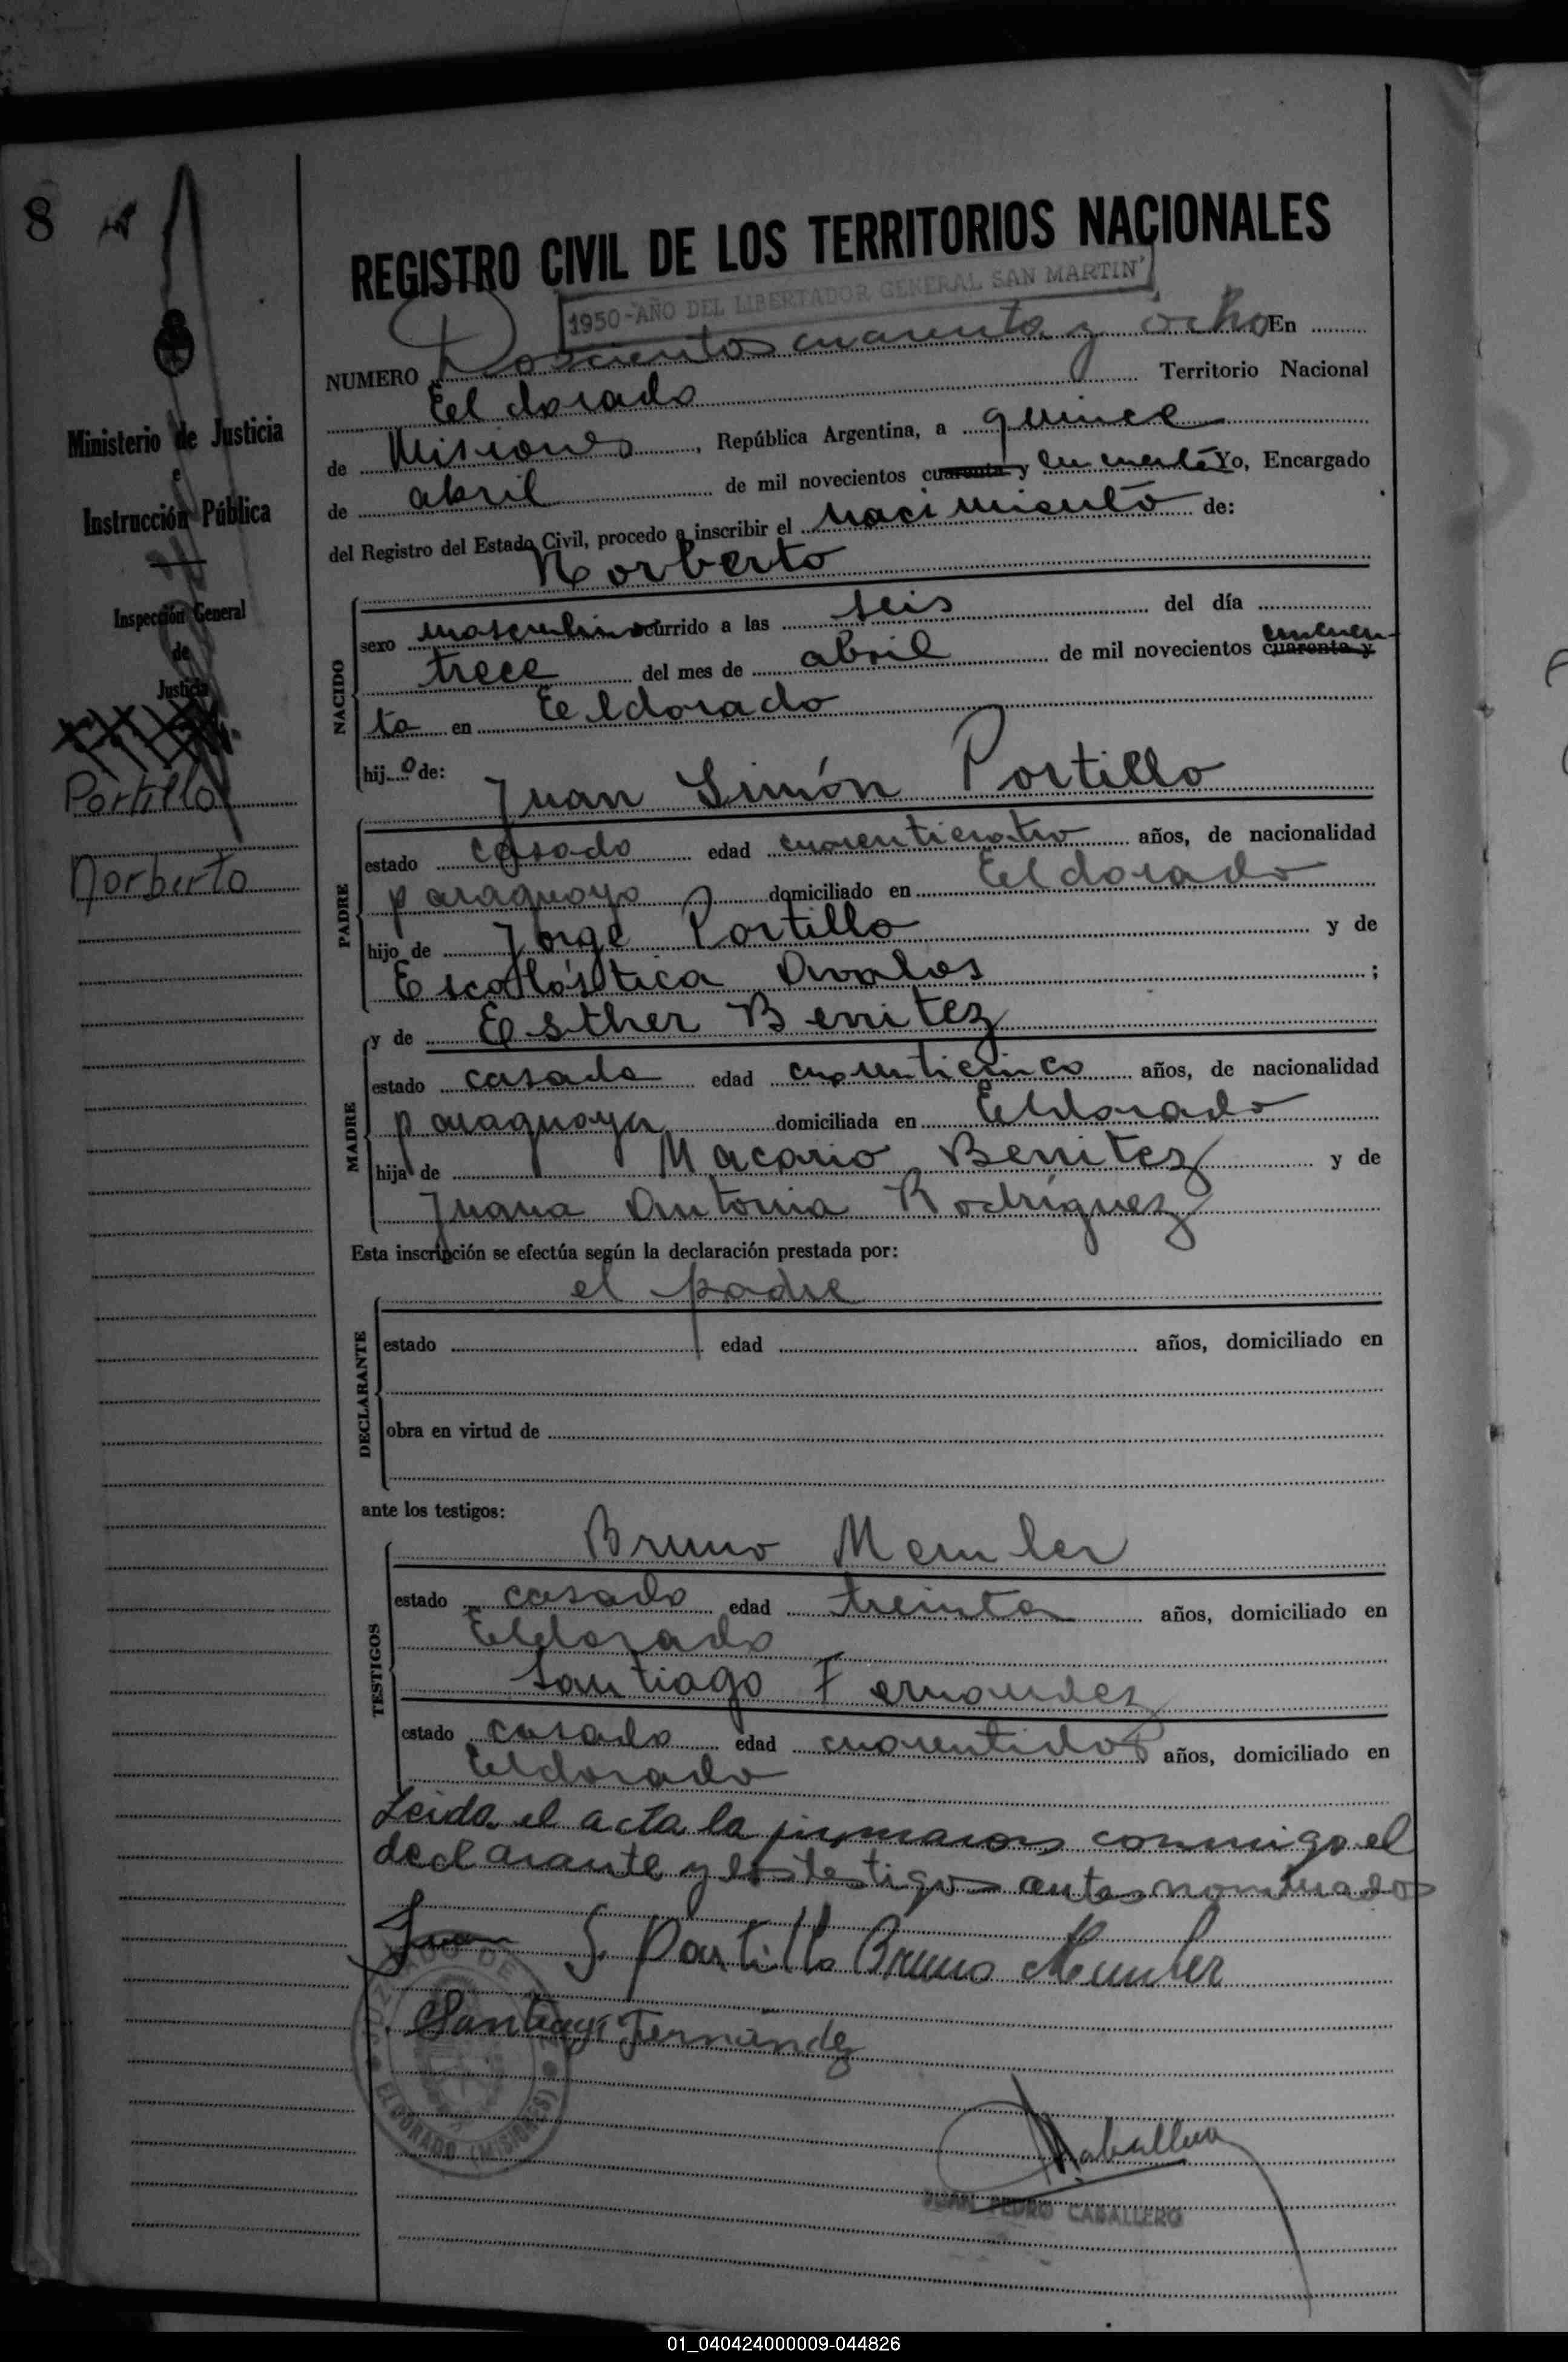 8
Ministerio de Justicia
e
Instrucción Pública
Inspección General
de
Justicia
Portillo
Norberto
REGISTRO CIVIL DE LOS TERRITORIOS NACIONALES
1950-AÑO DEL LIBERTADOR GENERAL SAN MARTIN
NUMERO Doscientos cuarenta y ocho En
Eldorado Territorio Nacional
de Misiones, República Argentina, a quince
de abril de mil novecientos cuarenta y cincuenta Yo, Encargado
del Registro del Estado Civil, procedo a inscribir el nacimiento de:
Norberto
NACIDO
sexo masculino ocurrido a las seis del día
trece del mes de abril de mil novecientos cuarenta y cincuen-
ta en Eldorado
hijo de:
Juan Simón Portillo
PADRE
estado casado edad cuarenticuatro años, de nacionalidad
paraguayo domiciliado en Eldorado
hijo de Jorge Portillo y de
Escolástica Avalos ;
y de Esther Benitez
MADRE
estado casada edad cuarenticinco años, de nacionalidad
paraguaya domiciliada en Eldorado
hija de Macario Benitez y de
Juana Antonia Rodríguez
Esta inscripción se efectúa según la declaración prestada por:
el padre
DECLARANTE
estado edad años, domiciliado en
obra en virtud de
ante los testigos:
Bruno
TESTIGOS
estado casado edad treinta años, domiciliado en
Eldorado
Santiago Fernandez
estado casado edad cuarentidos años, domiciliado en
Eldorado
Leida el acta la firmaron conmigo el
declarante y los testigos antes nombrados
Juan S. Portillo Bruno
Santiago Fernández
JUZGADO DE
EL DORADO (MISIONES)
Caballero
JUAN PEDRO CABALLERO
01_040424000009-044826